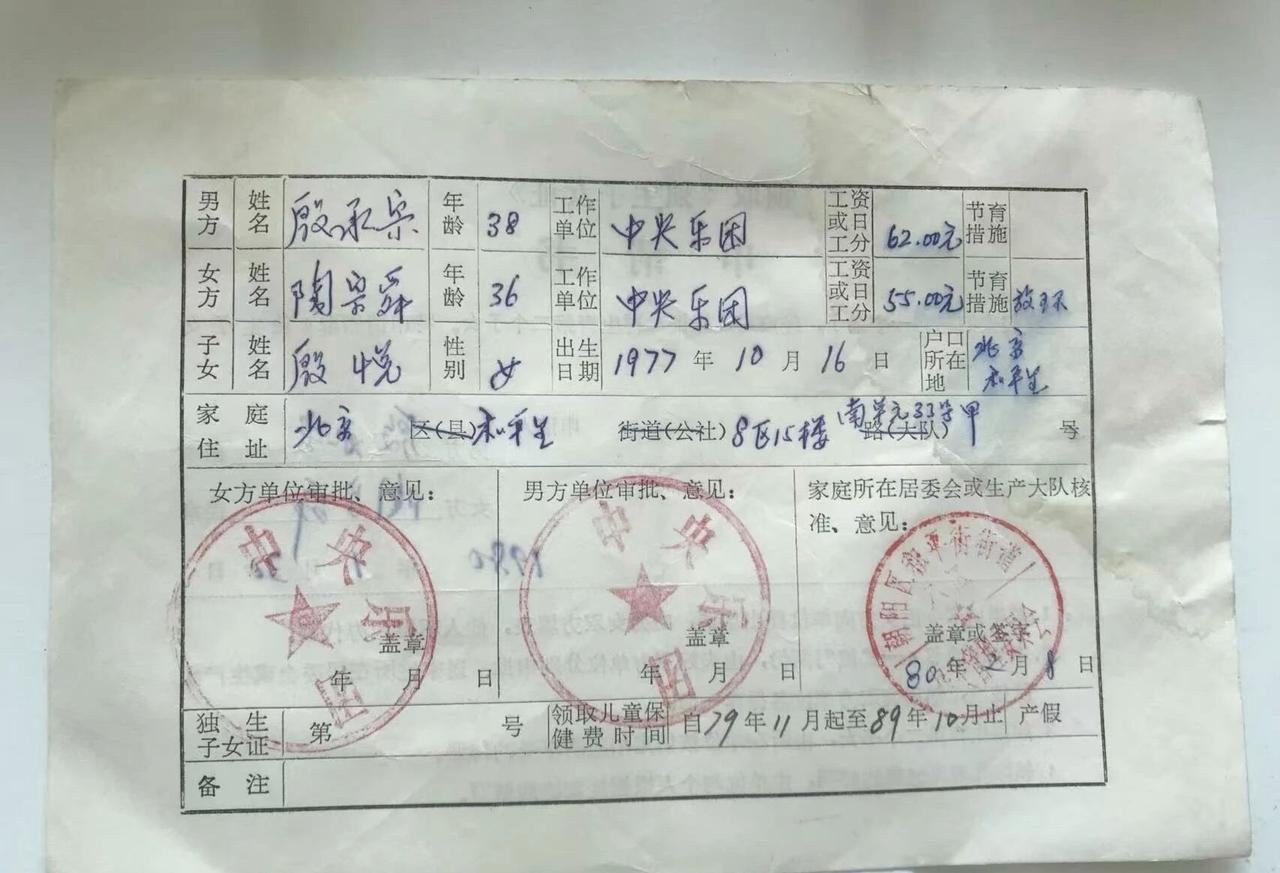 男方 姓名 殷承宗 年龄 38 工作单位 中央乐团 工资或日工分 62.00元 节育措施
女方 姓名 陶宗舜 年龄 36 工作单位 中央乐团 工资或日工分 55.00元 节育措施 放环
子女 姓名 殷悦 性别 女 出生日期 1977年10月16日 户口所在地 北京和平里
家庭住址 北京 区(县) 和平里 街道(公社) 8区15楼 南单元33号甲 路(大队) 号
女方单位审批、意见:
中央乐团
盖章
年 月 日
男方单位审批、意见:
中央乐团
盖章
年 月 日
家庭所在居委会或生产大队核
准、意见:
朝阳区和平街街道
盖章或签字
80年2月8日
独生子女证 第 号 领取儿童保健费时间 自79年11月起至89年10月止 产假
备注